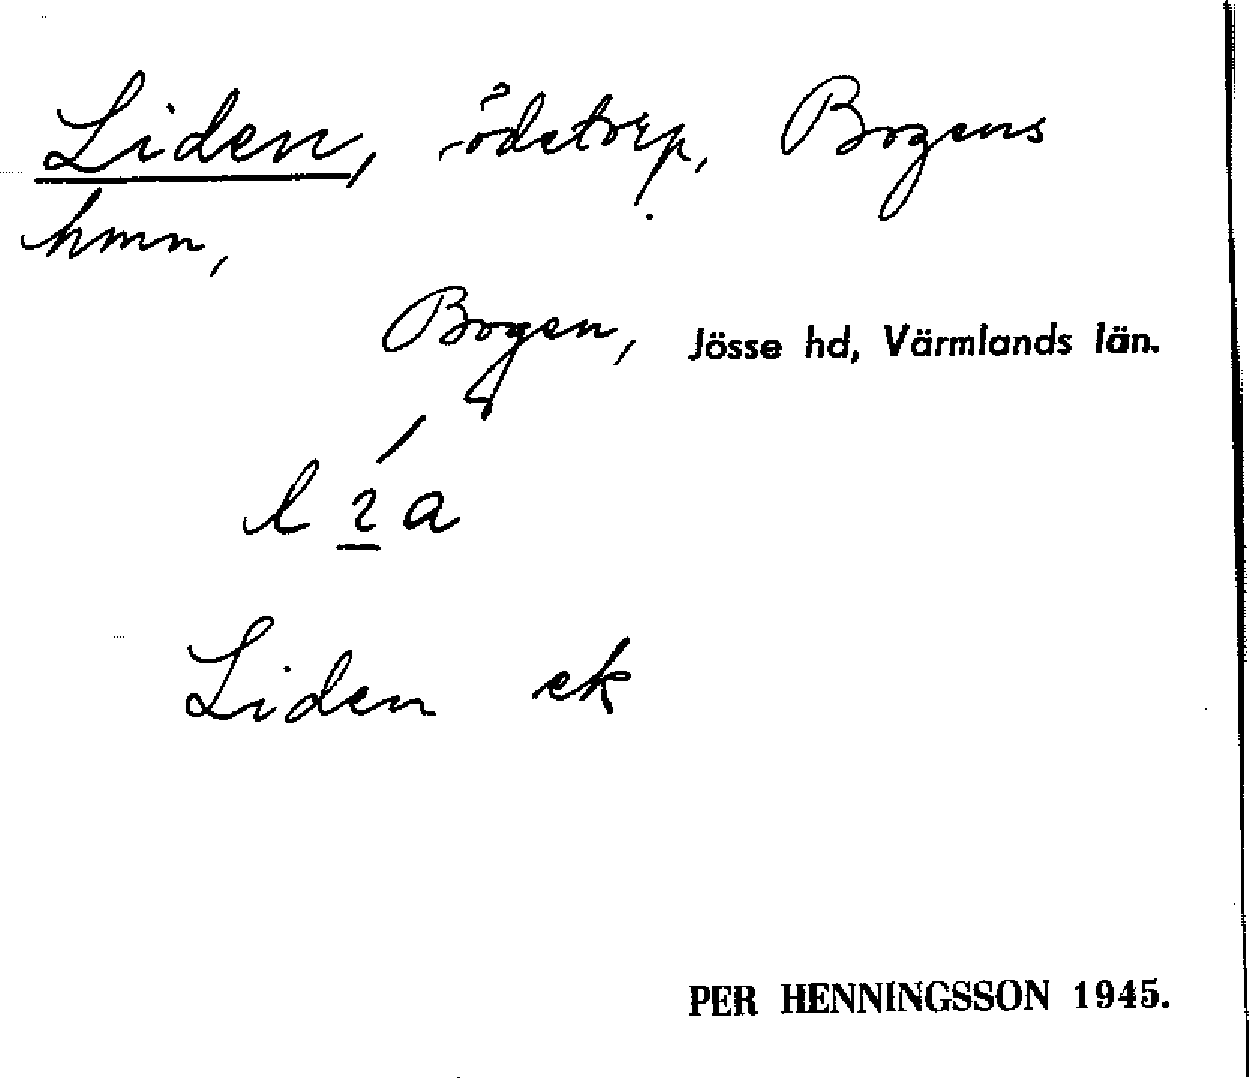 Liden, ödetorp, Bogens
hmn,
Bogen, Jösse hd, Värmlands län.
Liden ek
PER HENNINGSSON 1945.